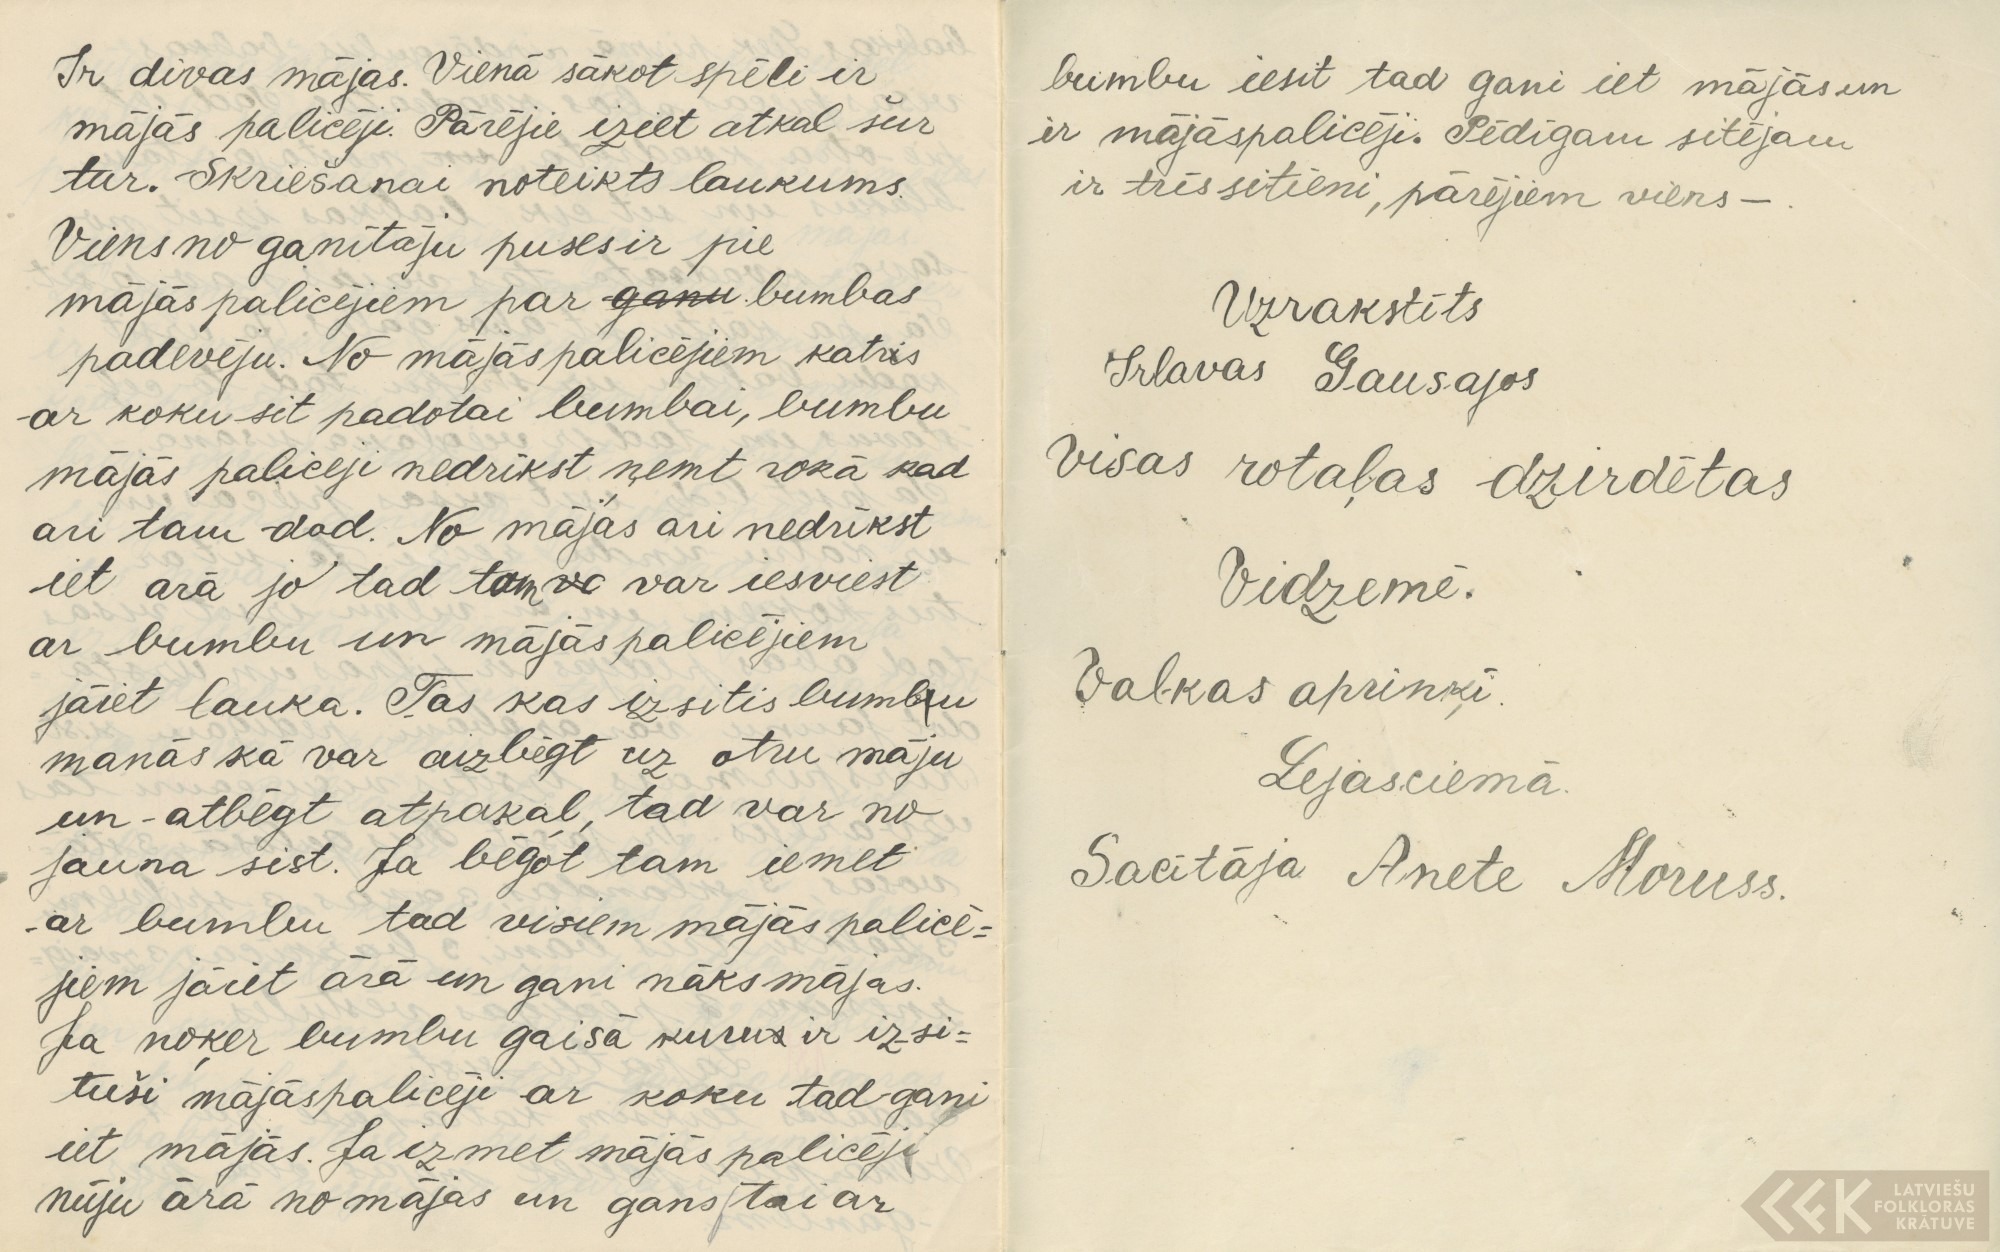 Ir divas mājas. Vienā sākot spēli ir
mājās palicēji. Pārējie iziet atkal šur
tur. Skriešanai noteikts laukums.
Viens no ganītāju puses ir pie
mājās palicējiem par ganu bumbas
padevēju. No mājāspalicējiem katris
ar koku sit padotai bumbai, bumbu
mājās palicēji nedrīkst ņemt rokā kad
ari tam dod. No mājas ari nedrīkst
iet arā jo tad tam var iesviest
ar bumbu un mājāspalicējiem
jāiet lauka. Tas kas izsitis bumbu
manās kā var aizbēgt uz otru māju
un atbēgt atpakaļ, tad var no
jauna sist. Ja bēgot tam iemet
ar bumbu tad visiem mājās palicē=
jiem jāiet ārā un gani nāks mājas.
Ja noķer bumbu gaisā kurus ir izsi=
tuši mājāspalicēji ar koku tad gani
iet mājās. Ja izmet mājās palicēji
nūju ārā no mājas un gans tai ar
bumbu iesit tad gani iet mājās un
ir mājāspalicēji. Pēdīgam sitējam
ir trīs sitieni, pārējiem viens —.
Uzrakstīts
Irlavas Gausajos
Visas rotaļas dzirdētas
Vidzemē.
Valkas apriņķī.
Lejasciemā.
Sacītāja Anete Moruss.
LATVIEŠU
FOLKLORAS
KRĀTUVE